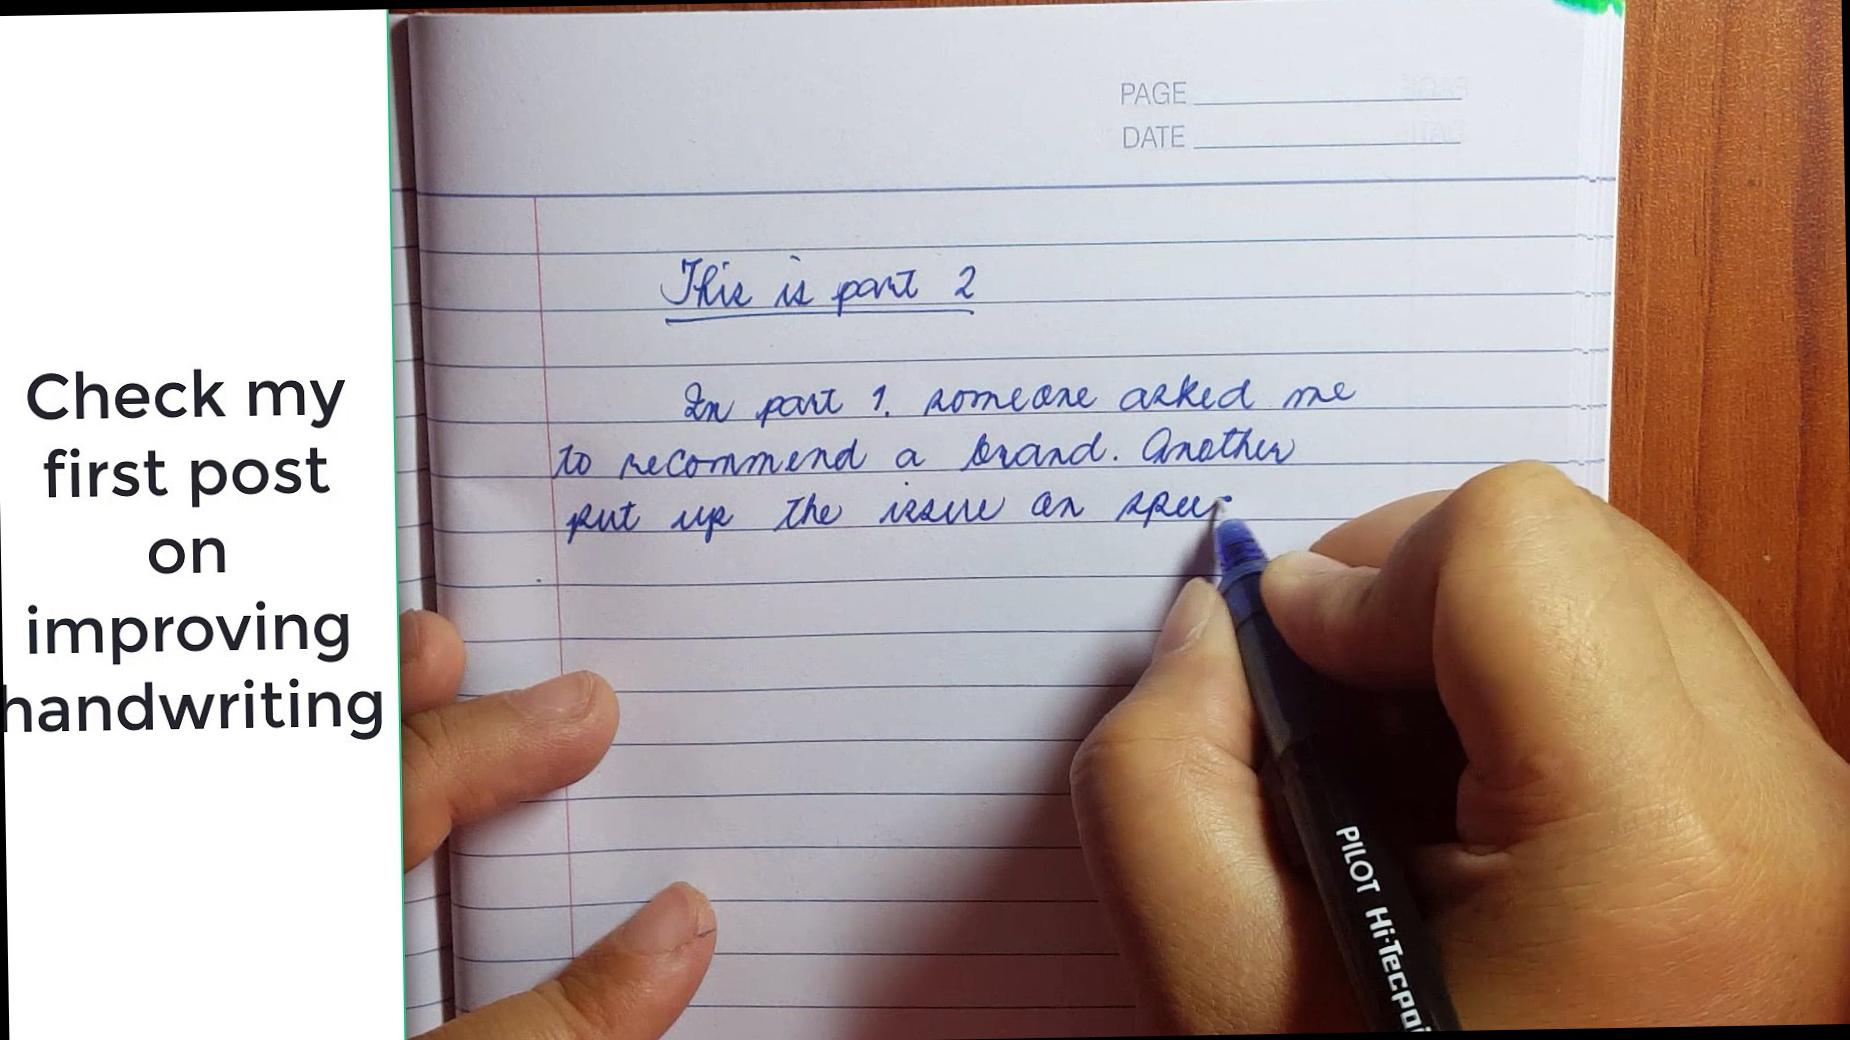 Check my
first post
on
improving
handwriting
PAGE
DATE
This is part 2
In part 1, someone asked me
to recommend a brand. Another
put up the issue on
PILOT Hi-Tecpoi